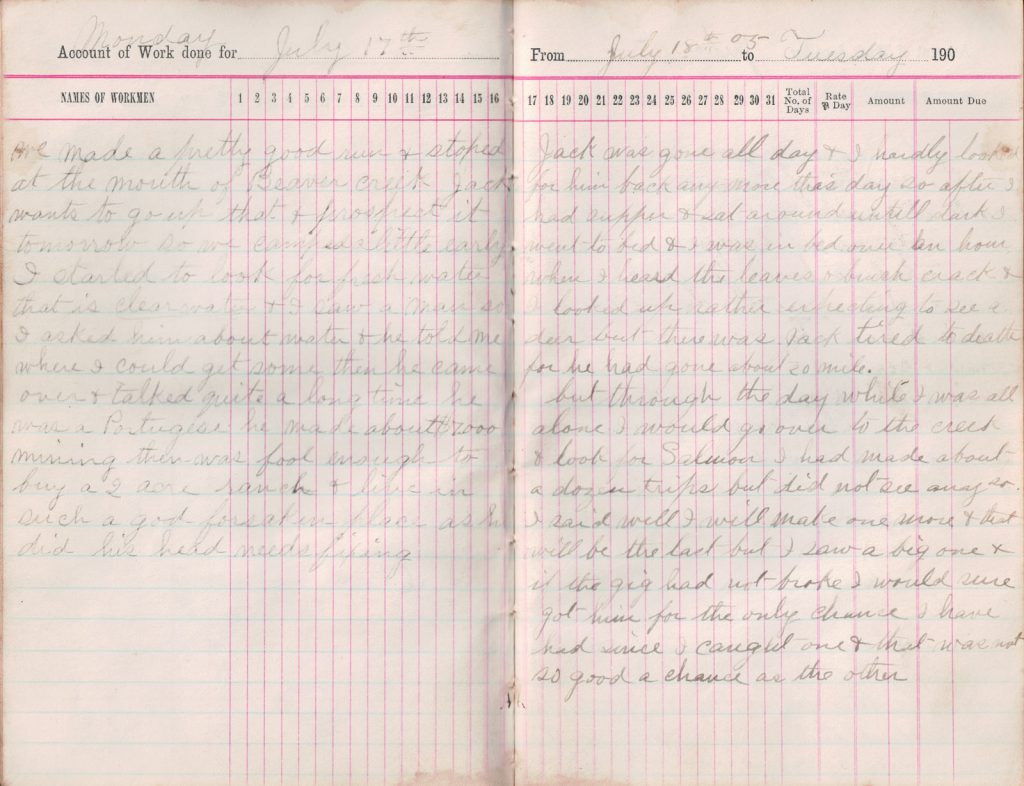 Monday
Account of Work done for July 17th
NAMES OF WORKMEN 1 2 3 4 5 6 7 8 9 10 11 12 13 14 15 16
We made a pretty good run & stoped
at the mouth of Beaver creek Jack
wants to go up that & prospect it
tomorrow so we camped a little early
I started to look for fresh water
that is clear water & I saw a man so
I asked him about water & he told me
where I could get some then he came
over & talked quite a long time he
was a Portugese he made about $7000
mining then was fool enough to
buy a 2 acre ranch & live in
such a god forsaken place as he
did his head needs fixing
From July 18th 05 to Tuesday 190
17 18 19 20 21 22 23 24 25 26 27 28 29 30 31 Total No. of Days Rate ⅌ Day Amount Amount Due
Jack was gone all day & I hardly looked
for him back any more that day so after I
had supper & sat around untill dark I
went to bed & I was in bed over hour
when I heard the leaves & brush crack &
I looked up rather expecting to see a
deer but there was Jack tired to death
for he had gone about 20 mile.
but through the day while I was all
alone I would go over to the creek
& look for Salmon I had made about
a dozen trips but did not see any so
I said well I will make one more & that
will be the last but I saw a big one &
if the gig had not broke I would sure
got him for the only chance I have
had since I caught one & that was not
so good a chance as the other